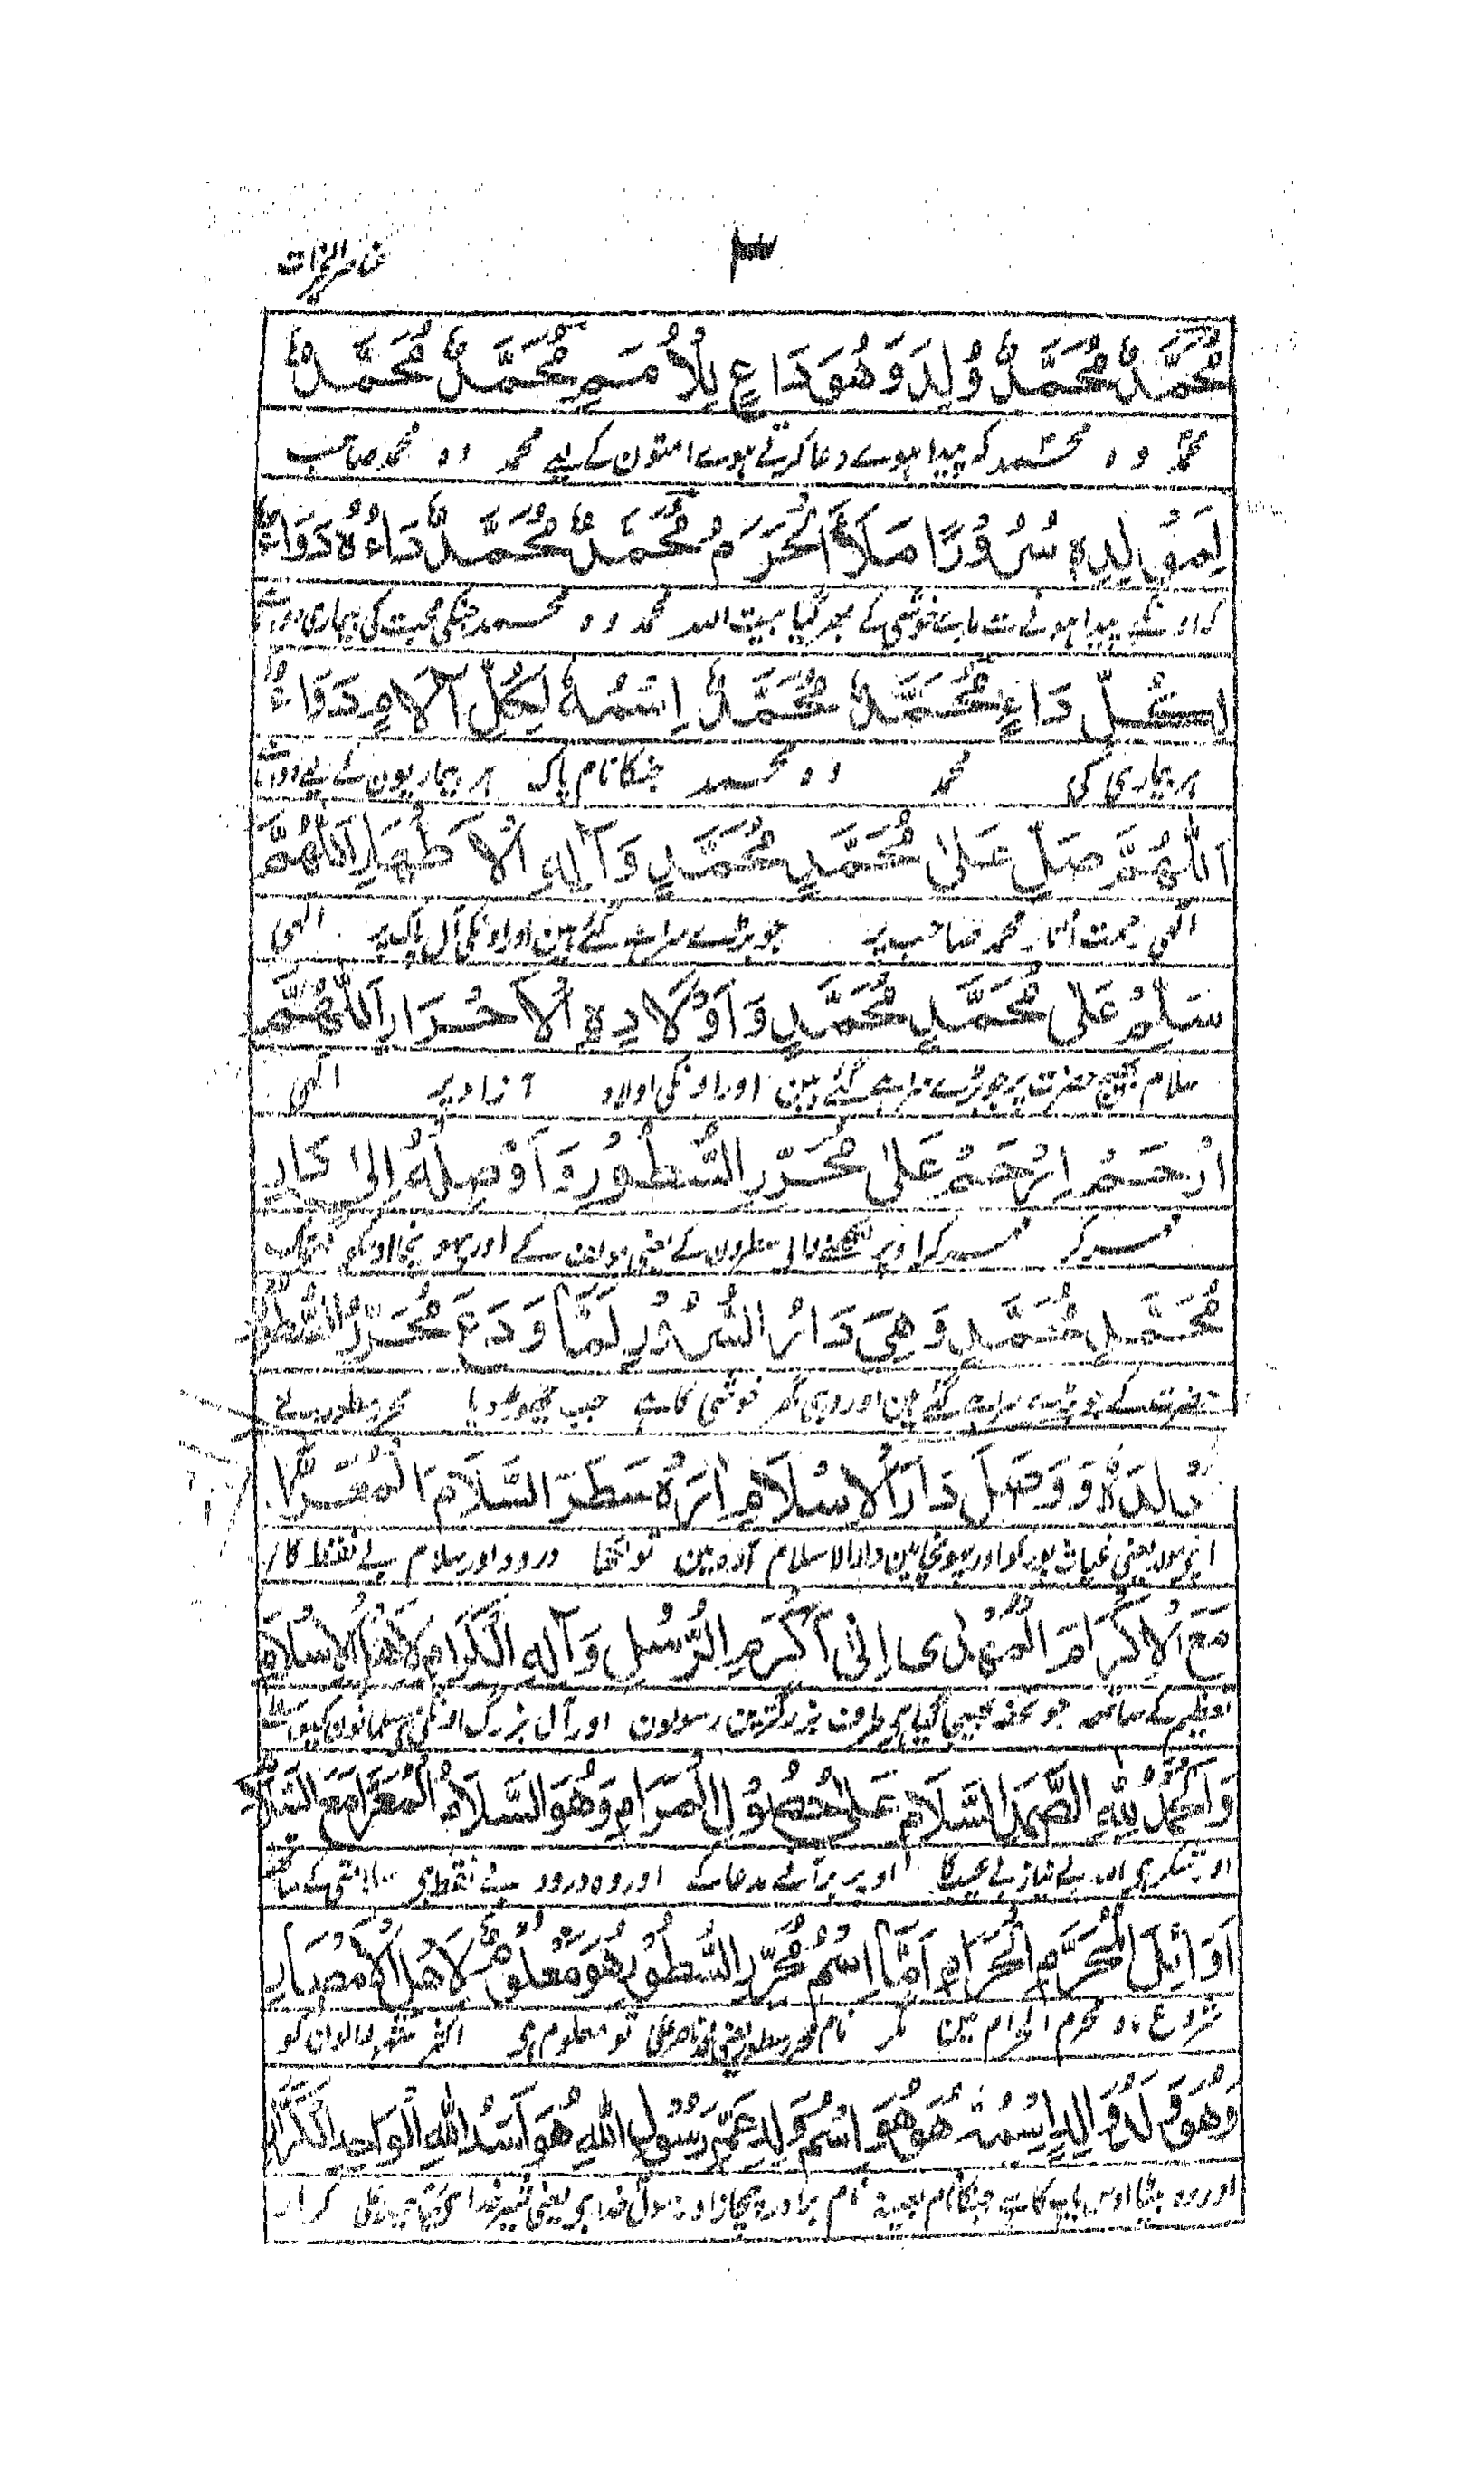 عناصر الخیرات
۳
مُحَمَّدٌ مُحَمَّدٌ وُلِدَ وَهُوَ دَاعٍ لِلْأُمَمِ مُحَمَّدٌ مُحَمَّدٌ
محمد وہ محمد کہ پیدا ہوے دعا کرتے ہوے امتون کے لیے محمد وہ محمد صاحب
لِمَوْلِدِهٖ سُرُوْرًا مَلَأَ الْحَرَمُ مُحَمَّدٌ مُحَمَّدٌ دَاءُهُ دَوَاءٌ
کہ اونکے پیدا ہونے سے خوشی کے بھر گیا بیت اللہ محمد وہ محمد جنکی محبت کی بیماری دوا ہے
لِكُلِّ دَاءٍ مُحَمَّدٌ مُحَمَّدٌ اِسْمُهٗ لِكُلِّ آلَامٍ دَوَاءٌ
ہر بیماری کی محمد وہ محمد جنکا نام پاک ہر بیماریون کے لیے دوا ہے
اَللّٰهُمَّ صَلِّ عَلٰى مُحَمَّدٍ مُحَمَّدٍ وَآلِهِ الْاَطْهَارِ اَللّٰهُمَّ
الٰہی رحمت اُتار محمد صاحب پر جو بڑے سراہے گئے ہین اور اونکی آل پاک پر الٰہی
سَلِّمْ عَلٰى مُحَمَّدٍ مُحَمَّدٍ وَاَوْلَادِهِ الْاَحْرَارِ اَللّٰهُمَّ
سلام بھیج حضرت پر جو بڑے سراہے گئے ہین اور اونکی اولاد آزاد پر الٰہی
ارْحَمْ اِرْحَمْ عَلٰى مُحَرِّرِ السُّطُوْرِ وَاَوْصِلْهُ اِلٰى دَارِ
رحم کر رحم کر اوپر لکھنے والے سطرون کے یعنی مولف کے اور پہونچا اوسکو
مُحَمَّدٍ مُحَمَّدٍ وَهِيَ دَارُ السُّرُوْرِ لَمَّا وَدَعَ مُحَرِّرُ السُّطُوْرِ
حضرت کے جو بڑے سراہے گئے ہین اور وہی گھر خوشی کا ہے جب چھوڑ دیا محرر سطور نے
بَلَدَهٗ وَوَصَلَ دَارَ الْاِسْلَامِ اٰرَهْ سَطَرَ السَّلَامَ الْمُعَرَّا
اپنی مولد یعنی غیاث پور کو اور پہونچا بین دار الاسلام آرہ مین تو لکھا درود اور سلام بے نقطہ کا
مَعَ الْاِكْرَامِ الْمُهْدٰى اِلٰى اَكْرَمِ الرُّسُلِ وَآلِهِ الْكِرَامِ لِاَهْلِ الْاِسْلَامِ
تعظیم کے ساتھ جو تحفہ بھیجا گیا ہی طرف بزرگترین رسولون اور آل بزرگ اونکی مسلمانون کیواسطے
وَالْحَمْدُ لِلّٰهِ الصَّمَدِ السَّلَامِ عَلٰى حُصُوْلِ الْمَرَامِ وَهُوَ السَّلَامُ الْمُعَرَّا مَعَ السَّلَامِ
اور شکر ہی اللہ بے نیاز بے عیب کا اوپر بر آنے مدعا کے اور وہ درود بے نقط ہی سلامتی کے ساتھ
اَوَائِلَ الْمُحَرَّمِ الْحَرَامِ اَمَّا اِسْمُ مُحَرِّرِ السُّطُوْرِ هُوَ مَعْلُوْمٌ لِاَهْلِ الْاَمْصَارِ
شروع ماہ محرم الحرام مین مگر نام محرر سطور یعنی محمد ناصر علی تو معلوم ہی اکثر شہر والون کو
وَهُوَ وَلَدُ وَالِدٍ اِسْمُهٗ هُوَ هُوَ اسْمُ وَلَدِ عَمِّ رَسُوْلِ اللّٰهِ هُوَ اَسَدُ اللّٰهِ الْوَاحِدِ الْكَرَّارُ
اور وہ بیٹا اوس باپ کا ہے جنکا نام بعینہ نام برادر چچازاد رسول خدا ہی یعنی شیر خدا کرار